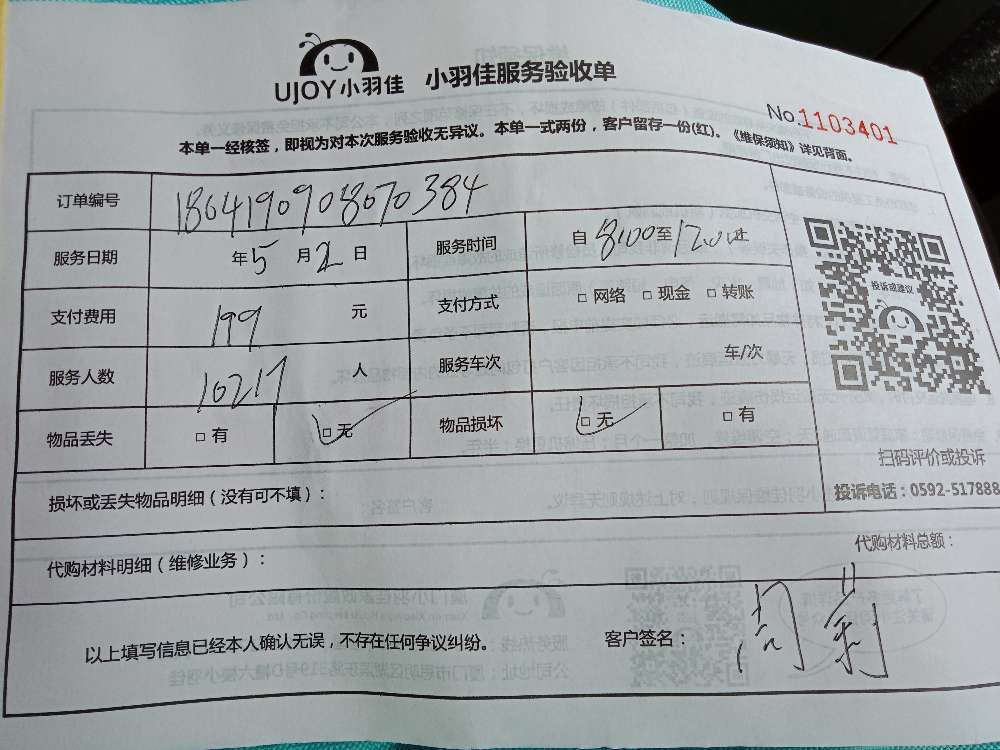 UJOY小羽佳 小羽佳服务验收单
No.1103401
本单一经核签，即视为对本次服务验收无异议。本单一式两份，客户留存一份(红)。《维保须知》详见背面。
订单编号 1864190908070384
服务日期 年5月2日 服务时间 自8:00至12:00止
支付费用 199元 支付方式 □网络 □现金 □转账
服务人数 10217人 服务车次 车/次
物品丢失 □有 □无 物品损坏 □无 □有
投诉或建议
扫码评价或投诉
投诉电话：0592-517888
损坏或丢失物品明细（没有可不填）：
代购材料明细（维修业务）： 代购材料总额：
以上填写信息已经本人确认无误，不存在任何争议纠纷。 客户签名：